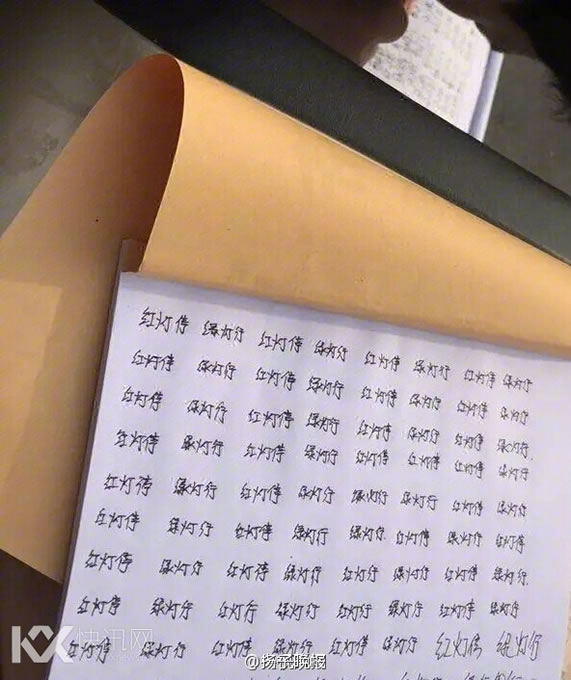 红灯停 绿灯行 红灯停 绿灯行 红灯停 绿灯行 红灯停 绿灯行
红灯停 绿灯行 红灯停 绿灯行 红灯停 绿灯行 红灯停 绿灯行
红灯停 绿灯行 红灯停 绿灯行 红灯停 绿灯行 红灯停 绿灯行
红灯停 绿灯行 红灯停 绿灯行 红灯停 绿灯行 红灯停 绿灯行
红灯停 绿灯行 红灯停 绿灯行 绿灯行 绿灯行 红灯停 绿灯行
红灯停 绿灯行 红灯停 绿灯行 绿灯行 红灯停 绿灯行 红灯停
红灯停 绿灯行 红灯停 绿灯行 红灯行 绿灯行 红灯停 绿灯行
红灯停 绿灯行 红灯行 绿灯行 红灯行 绿灯行 红灯停 绿灯行
红灯停 绿灯行 红灯停 绿灯行 红灯停 绿灯行 红灯停 绿灯行
KX 快讯网
@扬子晚报